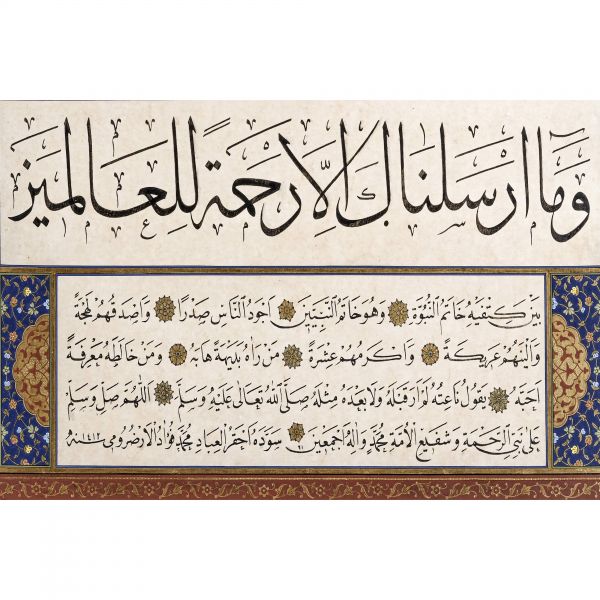 وَمَا اَرْسَلْنَاكَ اِلَّا رَحْمَةً لِلْعَالَمِينَ
بَيْنَ كَتِفَيْهِ خَاتَمُ النُّبُوَّةِ وَهُوَ خَاتَمُ النَّبِيّينَ اَجْوَدُ النَّاسِ صَدْرًا وَاَصْدَقُهُمْ لَهْجَةً
وَاَلْيَنُهُمْ عَرِيكَةً وَاَكْرَمُهُمْ عِشْرَةً مَنْ رَاٰهُ بَدِيهَةً هَابَهُ وَمَنْ خَالَطَهُ مَعْرِفَةً
اَحَبَّهُ يَقُولُ نَاعِتُهُ لَمْ اَرَ قَبْلَهُ وَلَا بَعْدَهُ مِثْلَهُ صَلَّى اللّٰهُ تَعَالٰى عَلَيْهِ وَسَلَّمَ اَللّٰهُمَّ صَلِّ وَسَلِّمْ
عَلٰى نَبِيِّ الرَّحْمَةِ وَشَفِيعِ الْاُمَّةِ مُحَمَّدٍ وَاٰلِهِ اَجْمَعِينَ سَوَّدَهُ اَحْقَرُ الْعِبَادِ مُحَمَّد فُؤَادُ الْاَرْضَرُومِى ١٤١٢ سنه